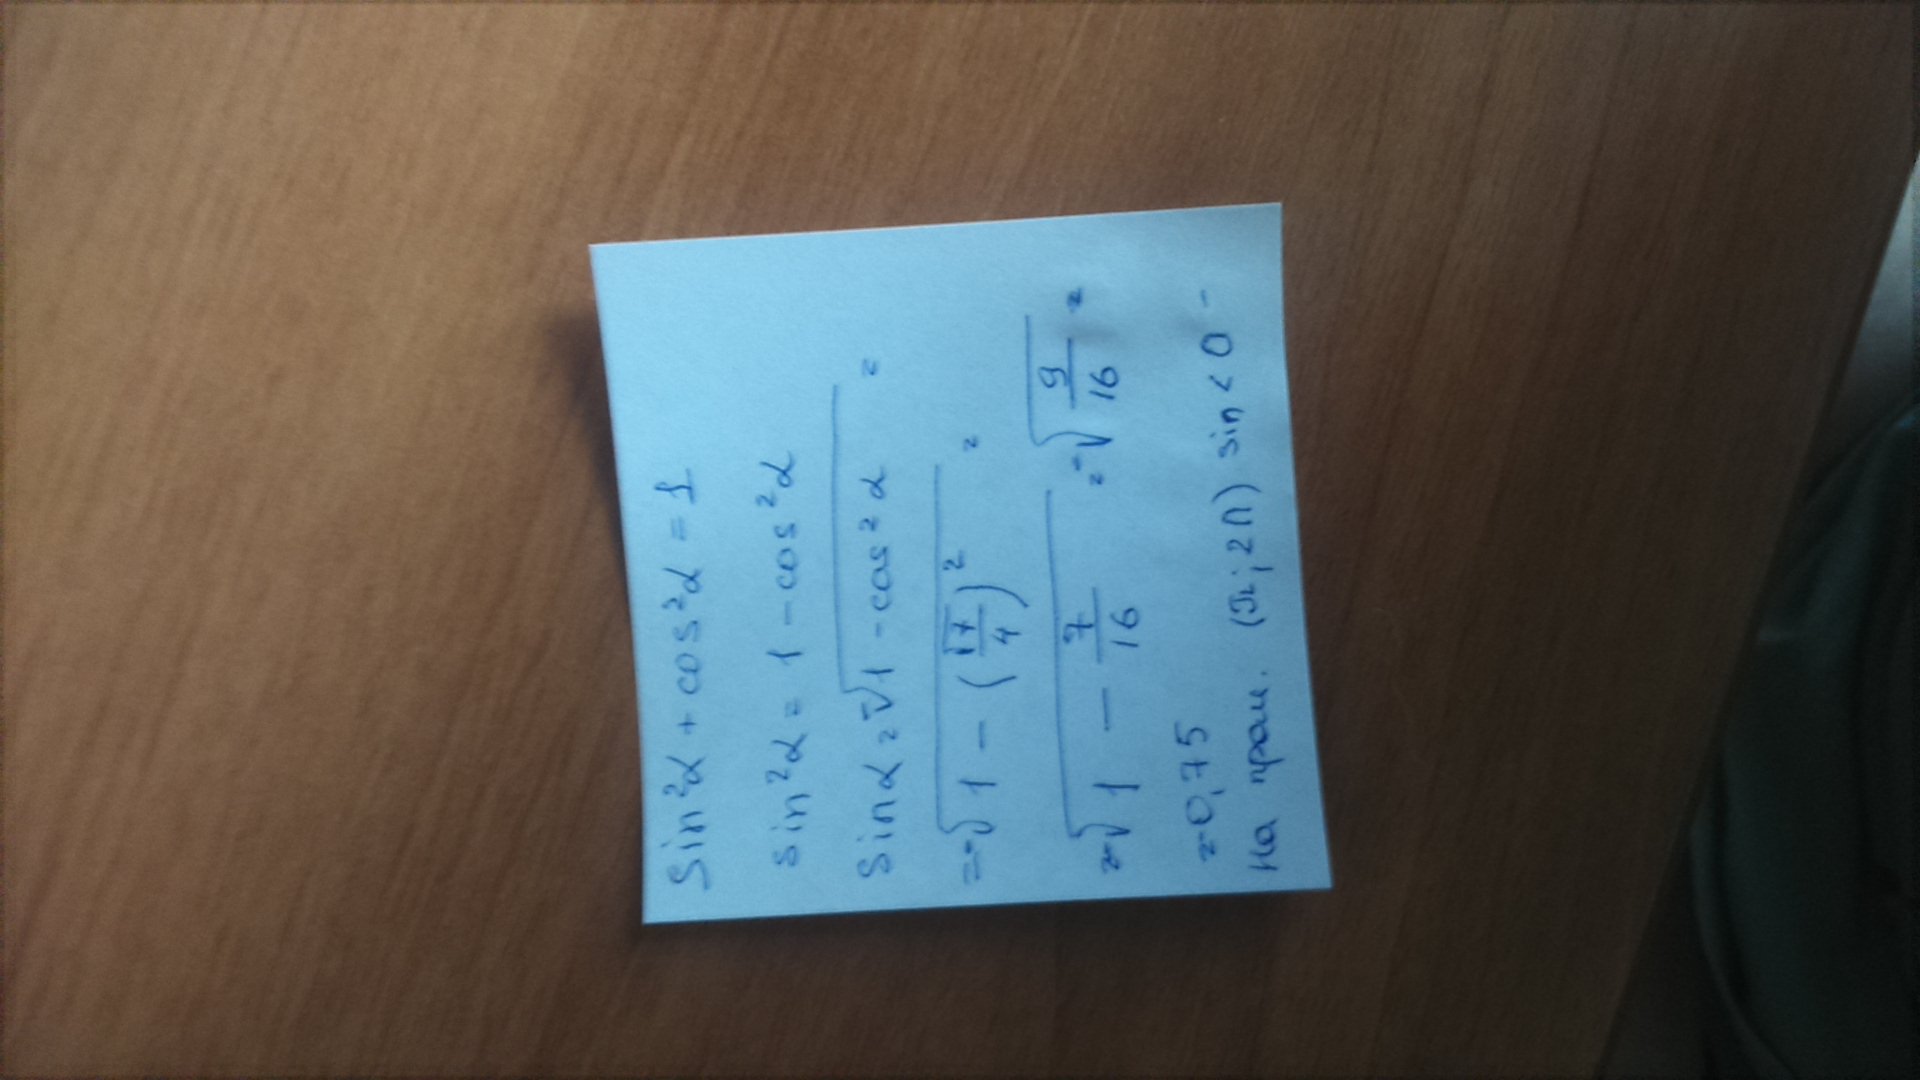 Sin²α + cos²α = 1
sin²α = 1 - cos²α
Sinα = -√(1 - cos²α) =
= -√(1 - (√7/4)²) =
= -√(1 - 7/16) = -√(9/16) =
= -0,75
На пром. (π; 2π) sin < 0 -